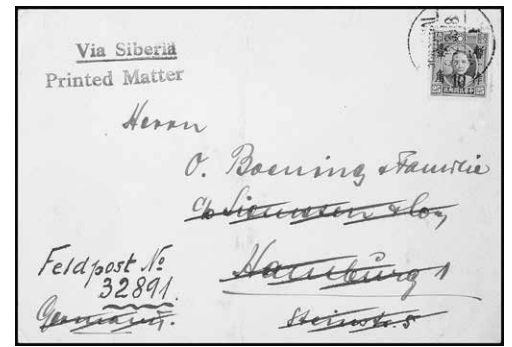 Via Siberia
Printed Matter
Herrn
O. Boening & Familie
c/o Siemssen & Co,
Hamburg 1
Steinstr. 5
Feldpost No
32891.
Germany.
暫作
10